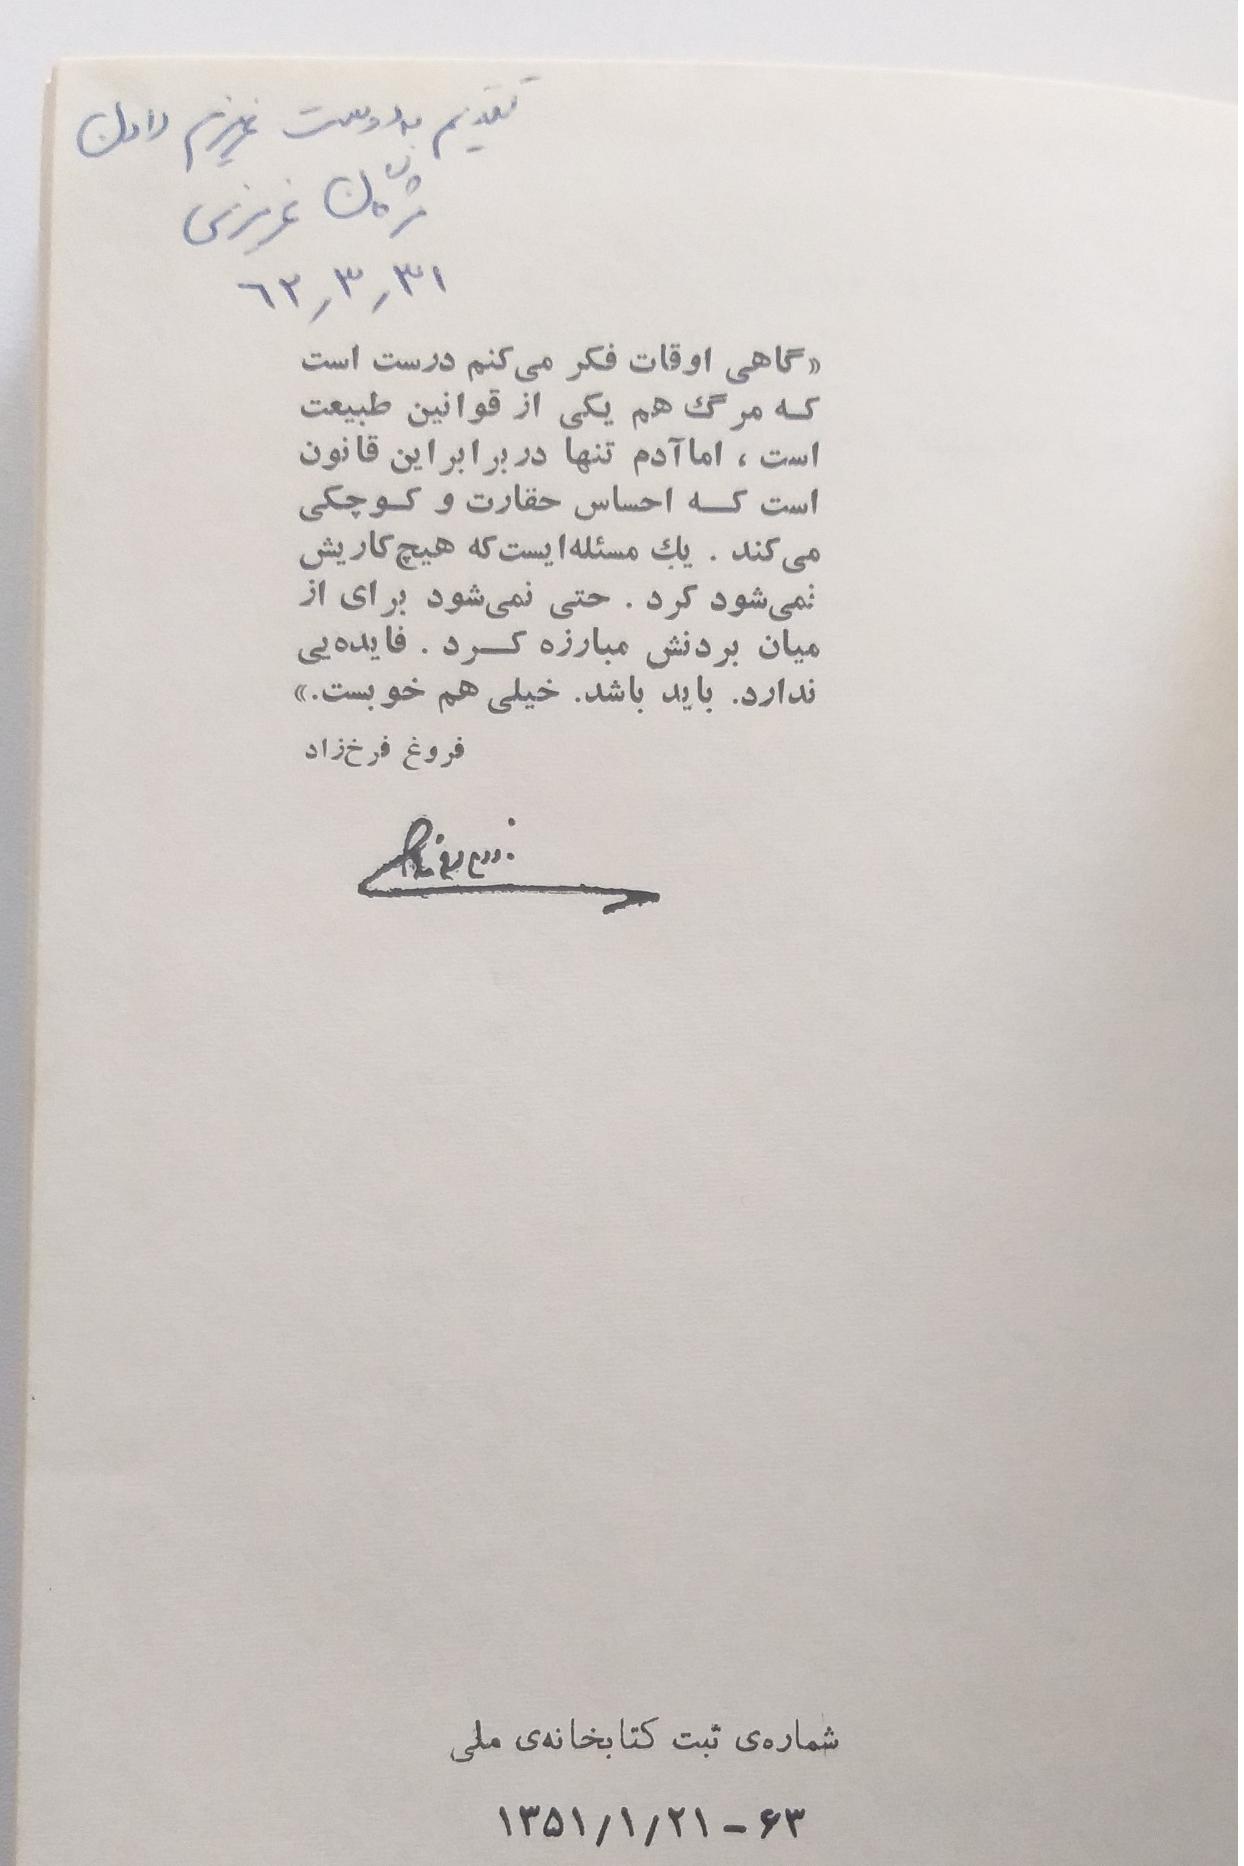 تقدیم به دوست عزیزم رادن
عزیزی
۳۱٫۳٫۶۲
«گاهی اوقات فکر می‌کنم درست است
که مرگ هم یکی از قوانین طبیعت
است ، اما آدم تنها در برابر این قانون
است که احساس حقارت و کوچکی
می‌کند . یک مسئله‌ایست که هیچ کاریش
نمی‌شود کرد . حتی نمی‌شود برای از
میان بردنش مبارزه کرد . فایده‌یی
ندارد. باید باشد. خیلی هم خوبست.»
فروغ فرخ‌زاد
فروغ فرخزاد
شماره‌ی ثبت کتابخانه‌ی ملی
۶۳ – ۱۳۵۱/۱/۲۱